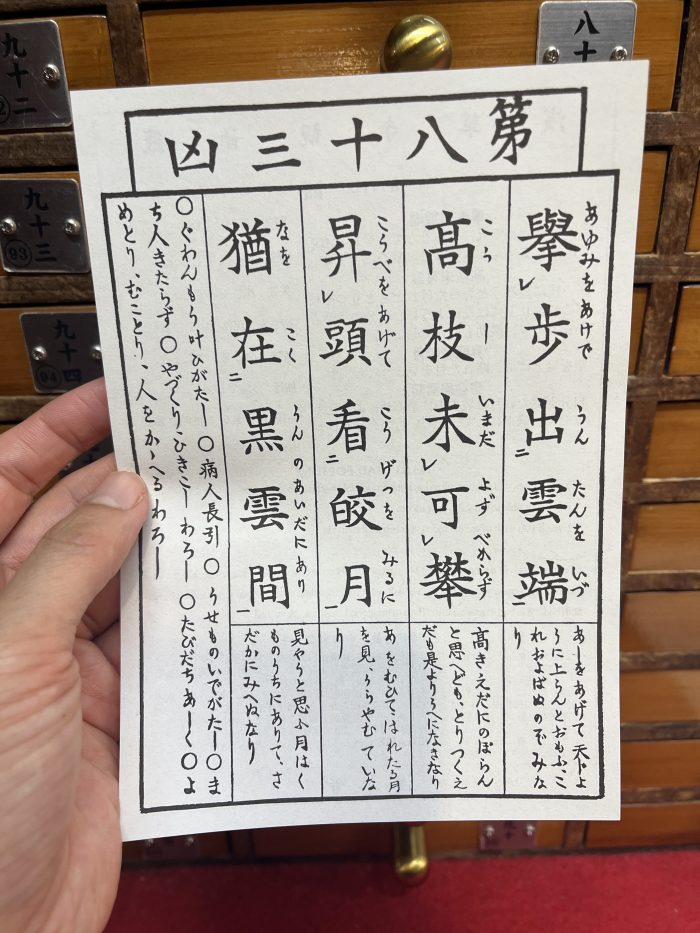 第八十三凶
擧歩出雲端
あゆみをあけて うん たんを いづ
高枝未可攀
こう しー いまだ よず べからず
昇頭看皎月
こうべをあげて こう げつを みるに
猶在黒雲間
なを こく うん のあいだにあり
あしをあげて天上よ
うに上らんとおもふ、こ
れおよばぬのぞみな
り
高きえだにのぼらん
と思へども、とりつくえ
だも是よりうへになきなり
あをむひてはれたる月
を見、うらやむていな
り
見やうと思ふ月はく
ものうちにありて、さ
だかにみへぬなり
〇ぐわんもう叶ひがたし 〇病人長引 〇うせものいでがたし〇ま
ち人きたらず〇やづくり、ひきこしわろし 〇たびだちあしく〇よ
めとり、むことり、人をかゝへるわろし
九十二
九十三
93
九十四
94
八十